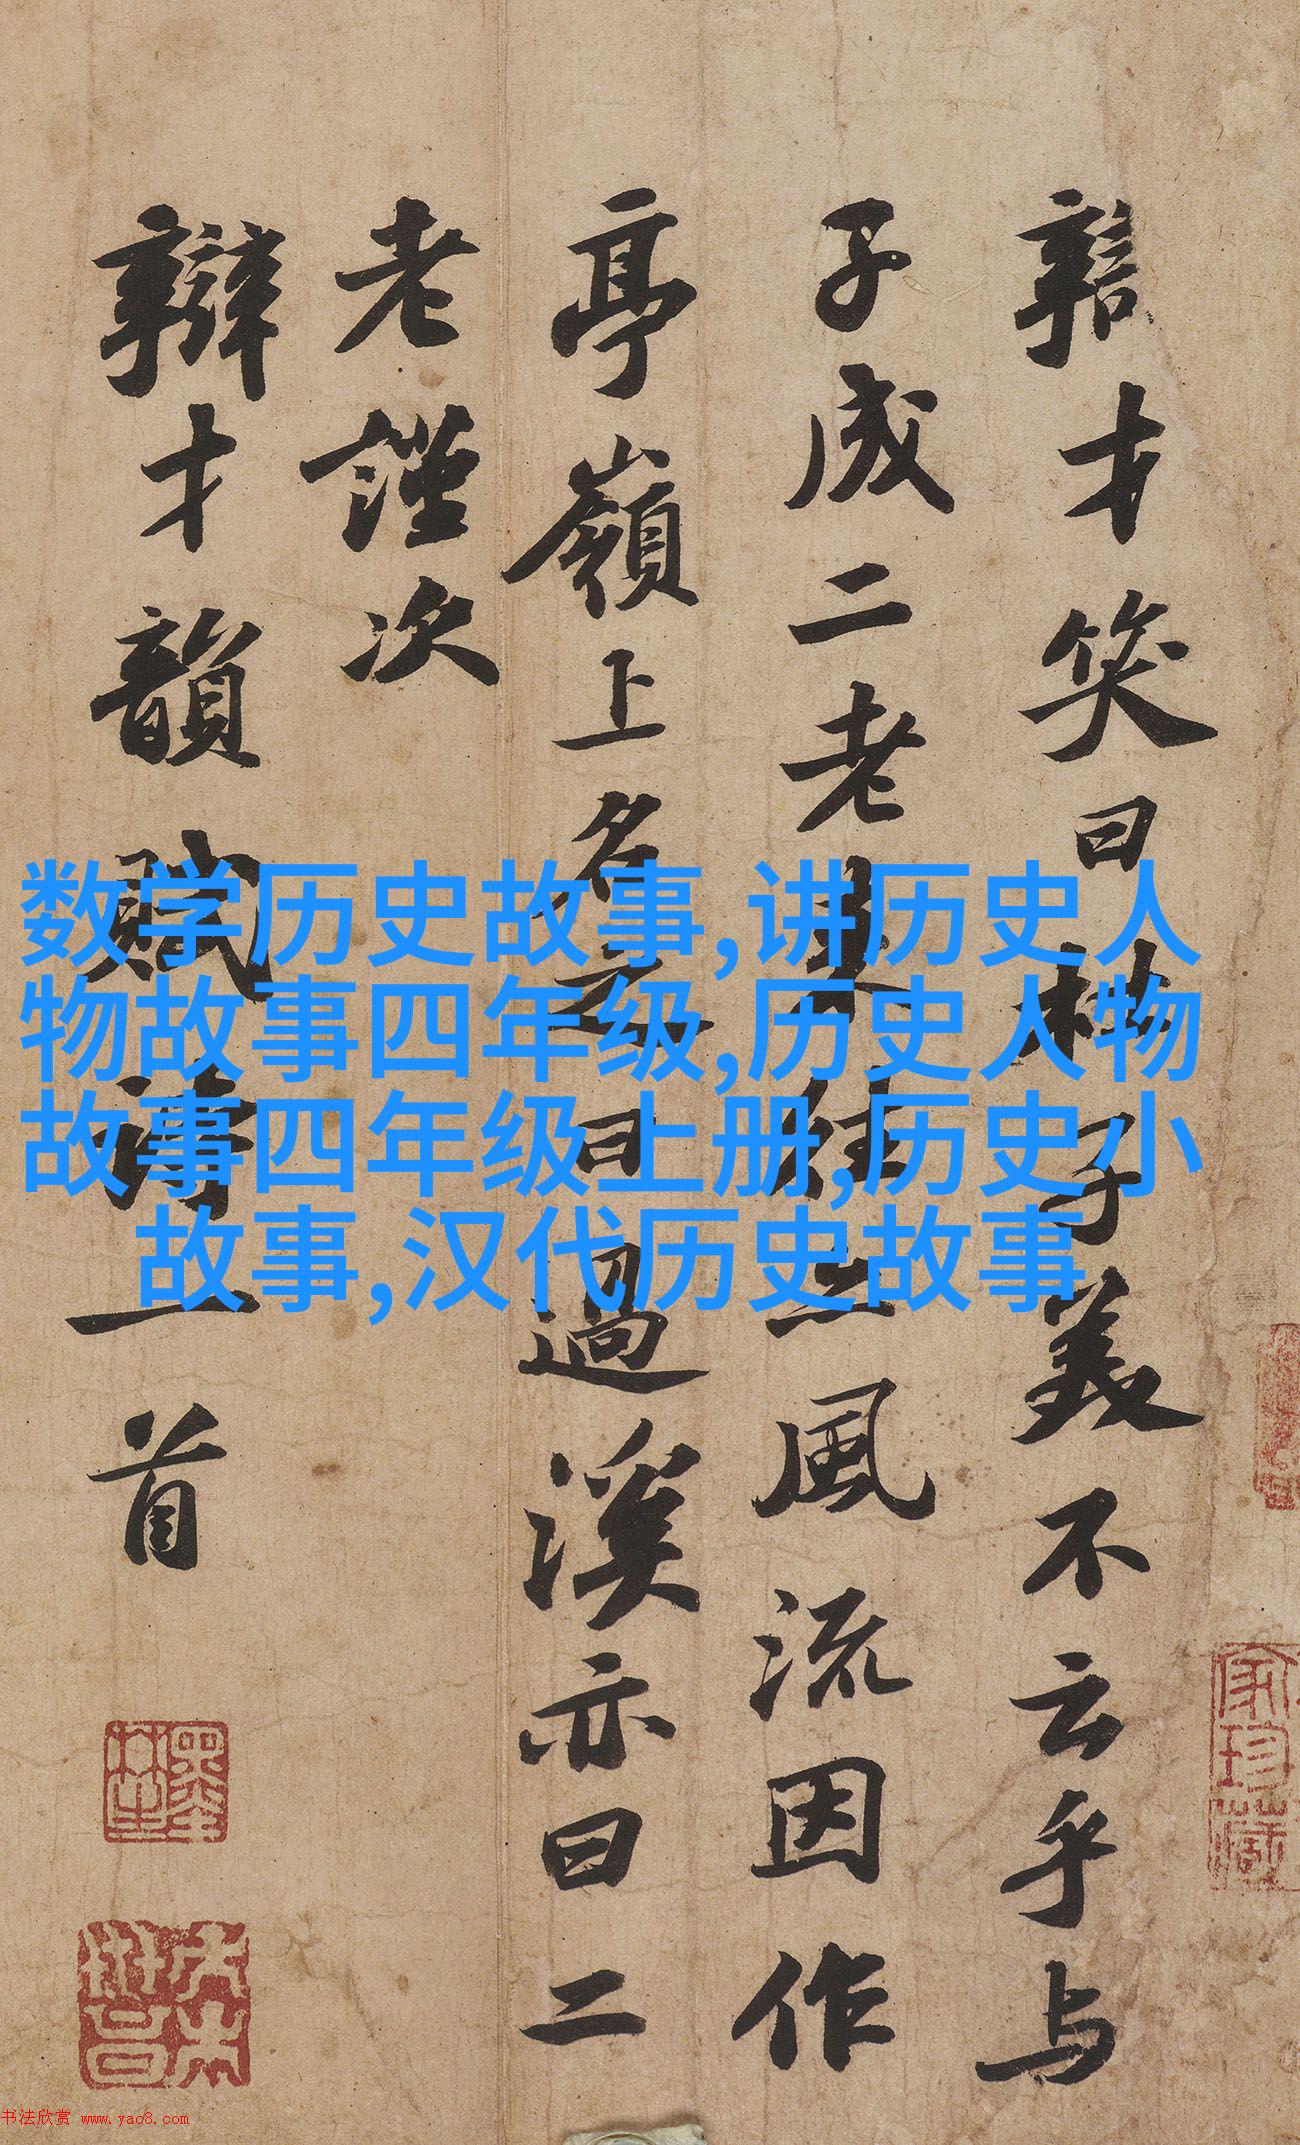 辯才笑曰杜子美不云乎与
子成二老来往亦風流因作
亭嶺上名之曰過溪亦曰二
老謹次
辯才韻賦詩一首
数学历史故事,讲历史人
物故事四年级,历史人物
故事四年级上册,历史小
故事,汉代历史故事
家珍藏
书法欣赏 www.yac8.com